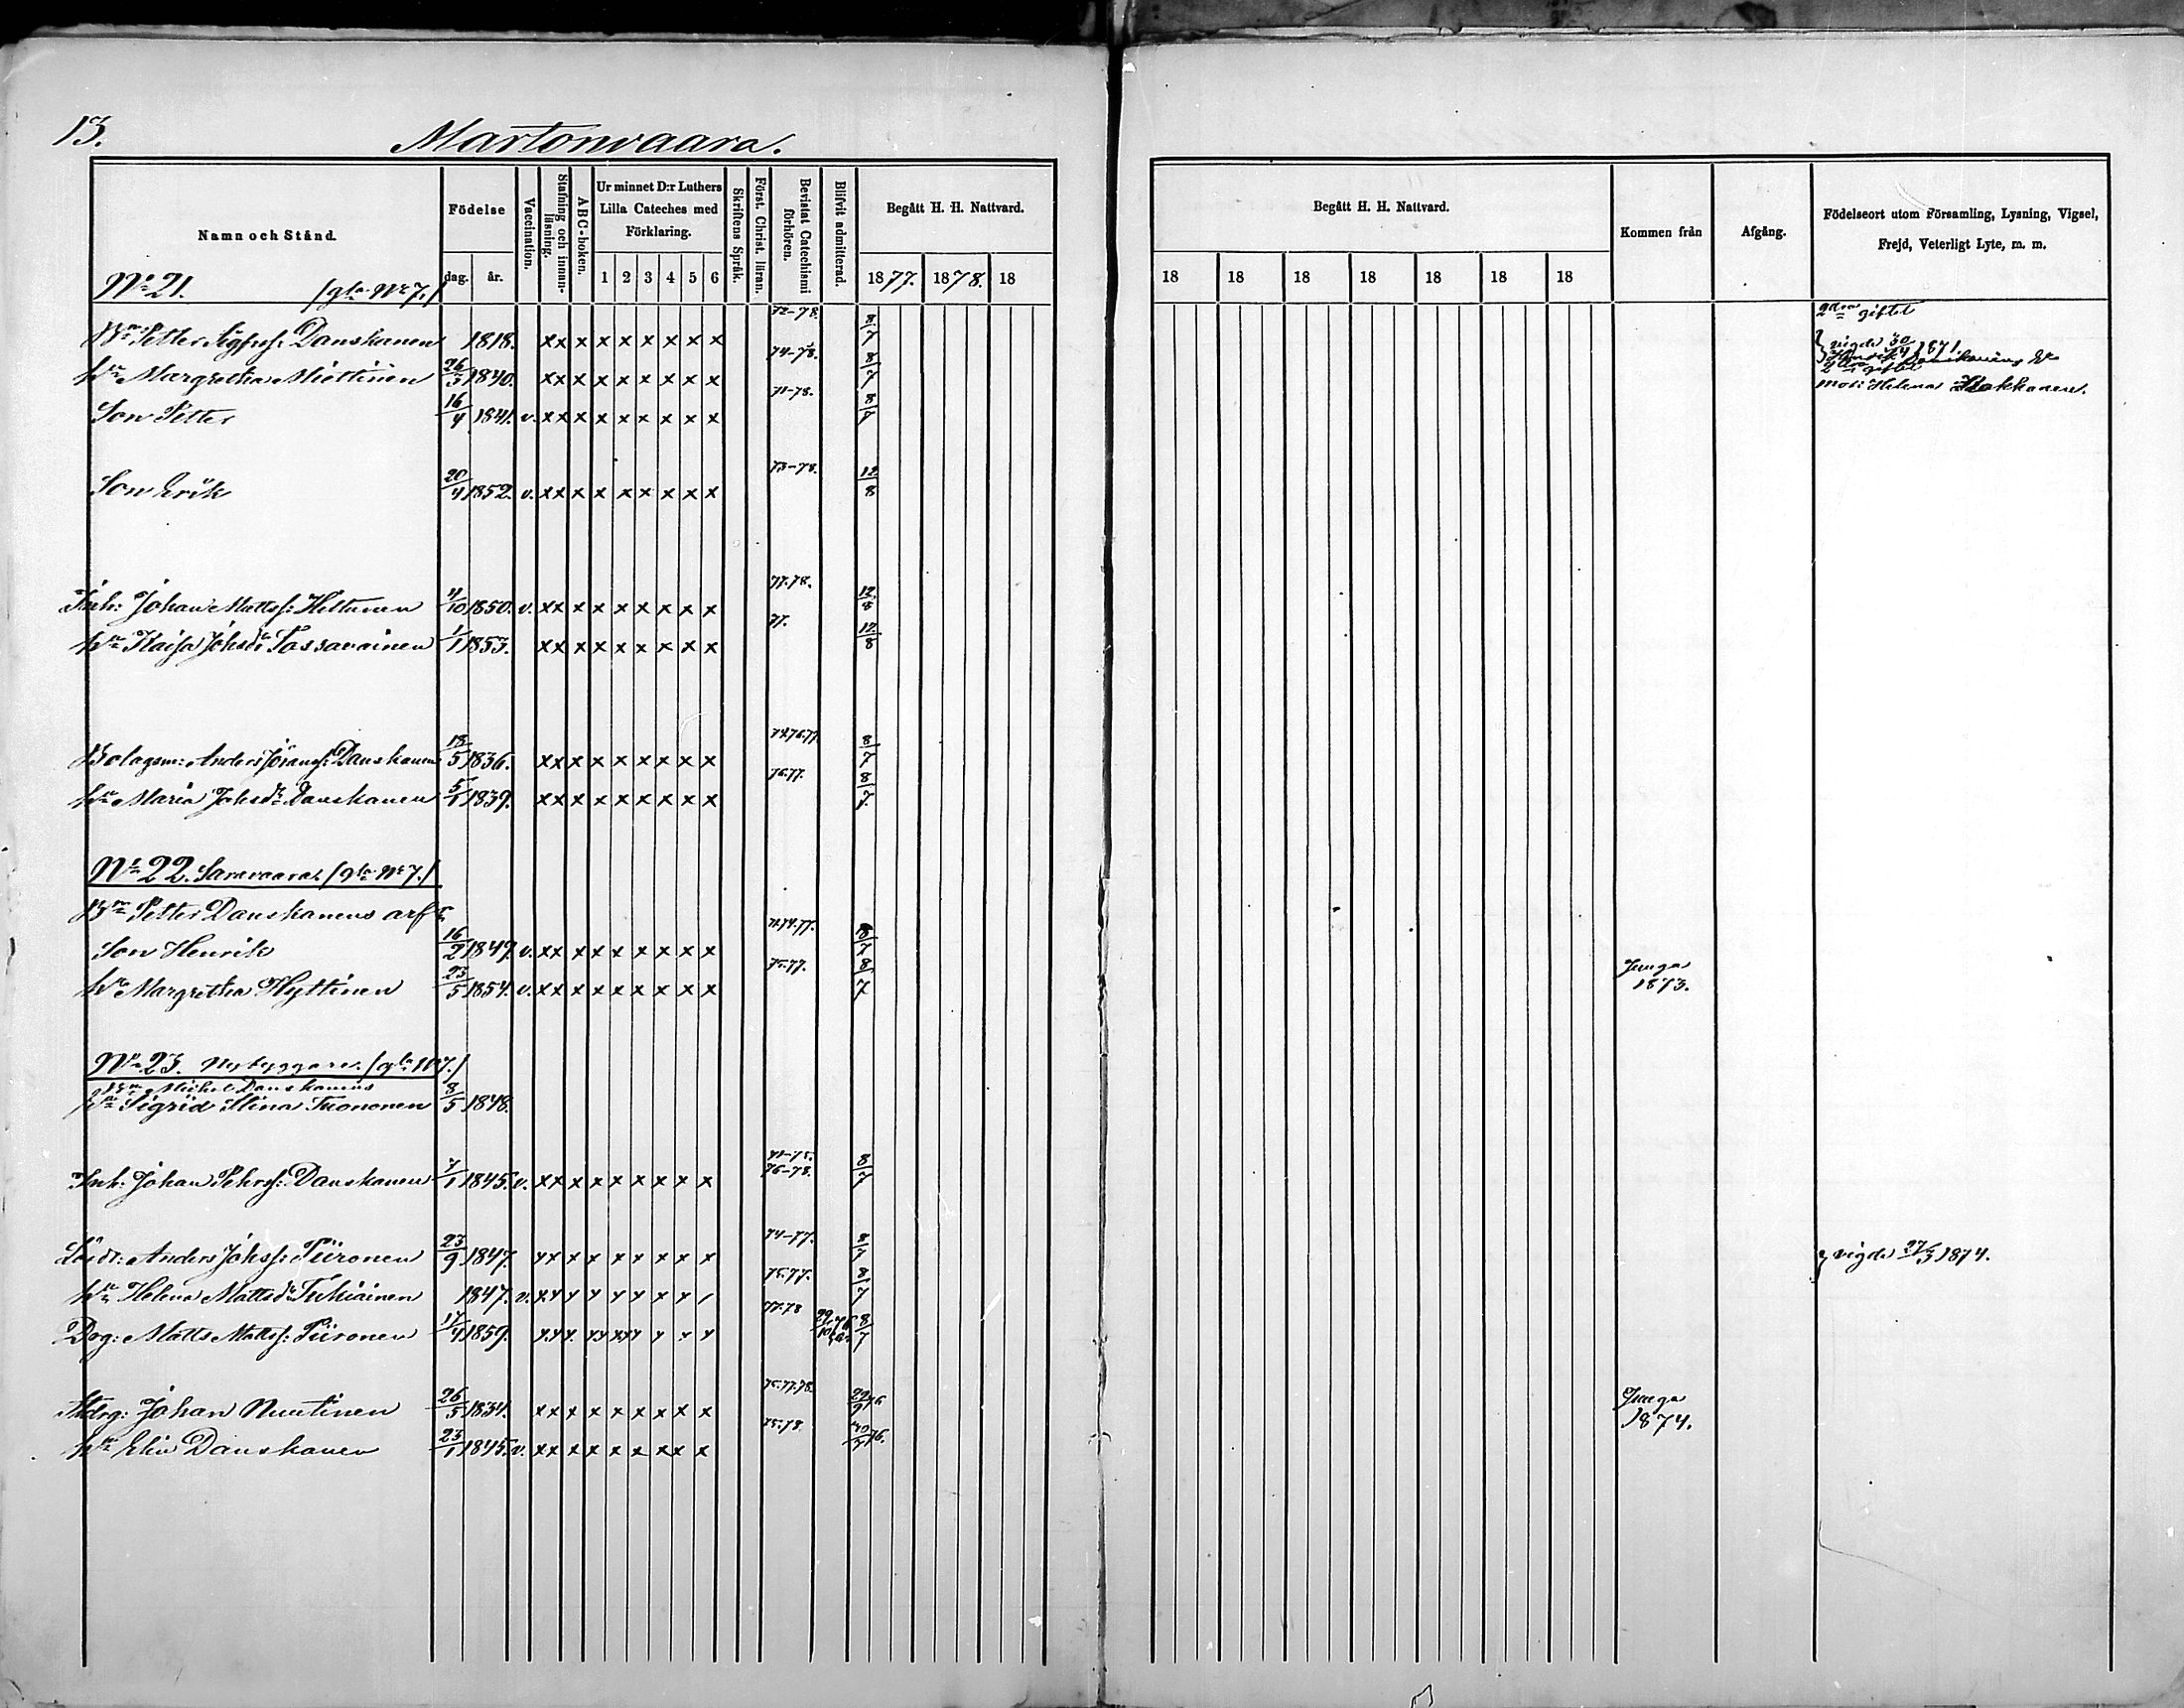 13.
Martonvaara.
Namn och Stånd.
Födelse
dag. år.
Vaccination.
Stafning och innan-läsning.
ABC-boken.
Ur minnet D:r Luthers Lilla Cateches med Förklaring.
1 2 3 4 5 6
Skriftens Språk.
Först. Christ. läran.
Bevistat Catechismi förhören.
Blifvit admitterad.
Begått H. H. Nattvard.
1877. 1878. 18
Begått H. H. Nattvard.
18 18 18 18 18 18 18
Kommen från
Afgång.
Födelseort utom Församling, Lysning, Vigsel, Frejd, Veterligt Lyte, m. m.
No 21. /gla No 7./
Bn Petter Sigfrs: Danskanen 1818. x x x x x x x x x 72-78. 8/7 2dra giftet
hu Margretha Miettinen 26/3 1840. x x x x x x x x x 74-78. 8/7 vigde 30 1871
Son Petter 16/4 1841. v. x x x x x x x x x 71-78. 8/7 mor: Helena Hakkanen.
Son Erik 20/4 1852. v. x x x x x x x x x 73-78. 12/8
Inh: Johan Mattss: Hiltunen 4/10 1850. v. x x x x x x x x x 77.78. 12/8
hu Kaisa Johsdr Sassavainen 1/1 1853. x x x x x x x x x 77. 12/8
Bolagsm: Anders Jöranss: Danskanen 18/5 1836. x x x x x x x x x 74.76.77. 8/7
hu Maria Johsdr Danskanen 5/1 1839. x x x x x x x x x 76.77. 8/7
No 22. Saravaara /gla No 7./
Bn Petter Danskanens arf
Son Henrik 16/2 1847. v. x x x x x x x x x 8/7
hu Margretha Hyttinen 23/5 1854. v. x x x x x x x x x 75.77. 8/7 Junga 1873.
No 23. Nybyggare. /gla No 7./
Bn Michel Danskanens
hu Sigrid Stina Tuononen 8/5 1848.
Inh: Johan Pehrs: Danskanen 7/1 1845. v. x x x x x x x x x 76-78. 8/7
Anders Johss: Piironen 23/9 1847. x x x x x x x x x 74-77. 8/7 vigde 27/3 1874.
hu Helena Mattsdr Tukiainen 1847. v. x x x x x x x x 75.77. 8/7
Drg: Matts Mattss: Piironen 17/4 1859. x x x x x x x x x x 77.78 8/7
Johan Nuutinen 26/5 1834. x x x x x x x x x 75.77.78. 22/9 76 Junga 1874.
hu Elin Danskanen 23/1 1845. v. x x x x x x x x x 75.78. 76.